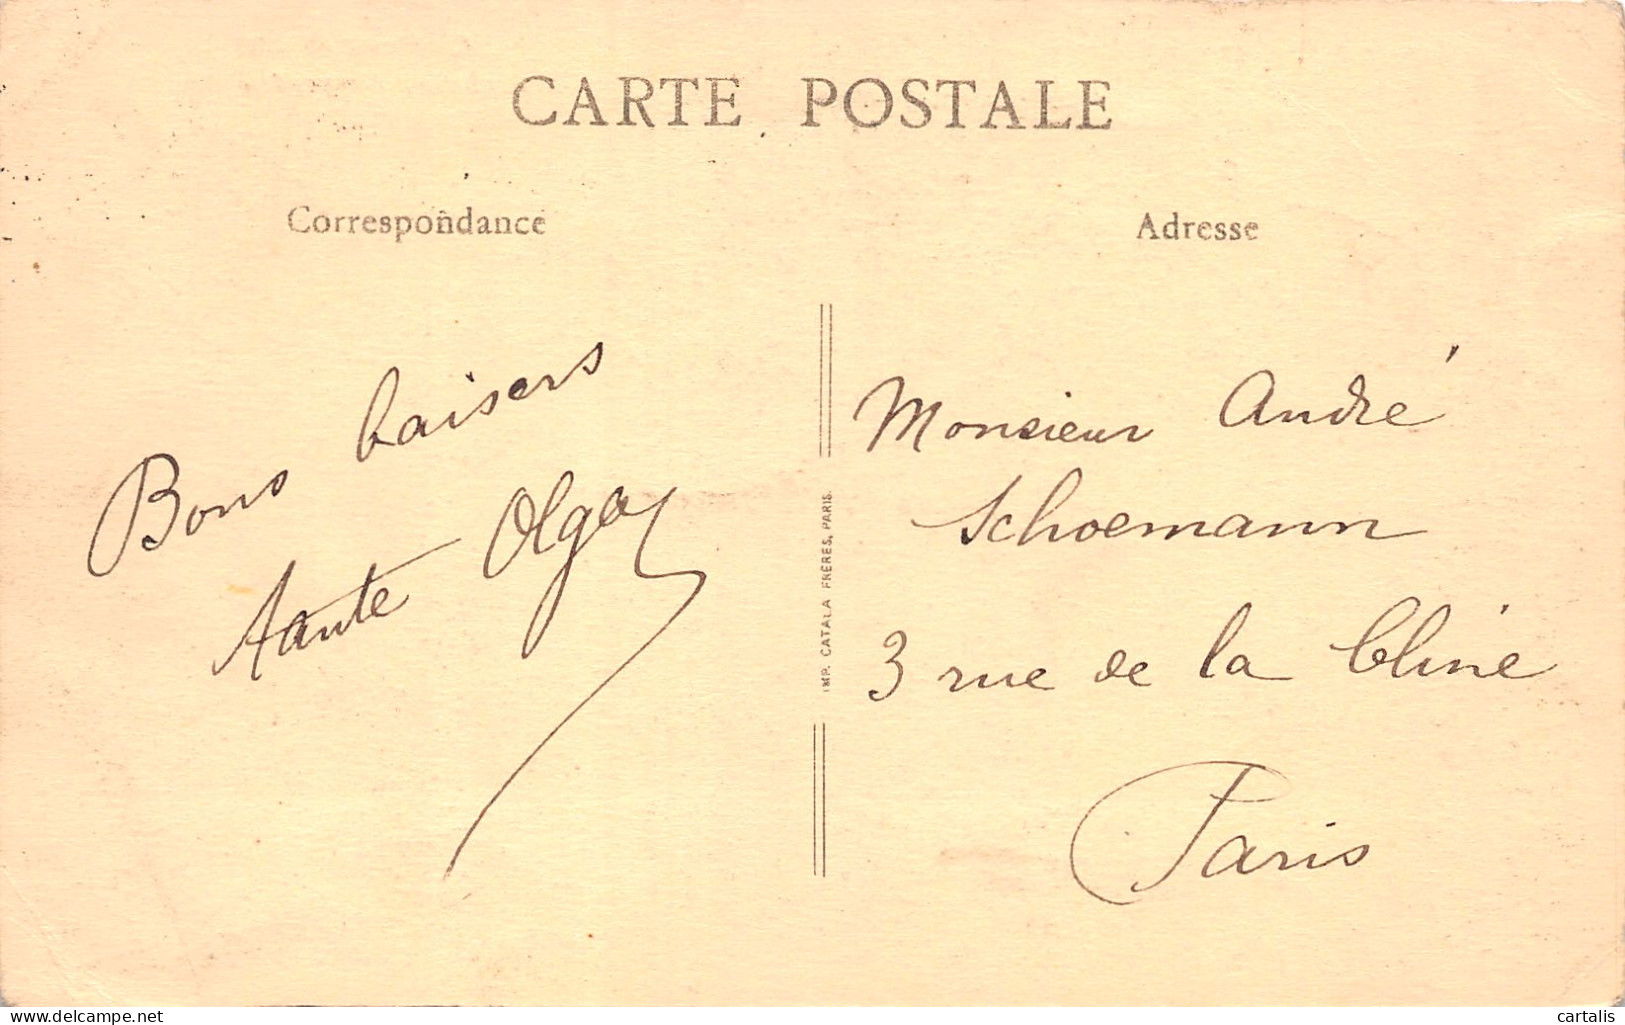 CARTE POSTALE
Correspondance
Adresse
Bons baisers
Tante Olga
IMP. CATALA FRÈRES, PARIS.
Monsieur André
Schoemann
3 rue de la
Paris
www.delcampe.net
cartalis